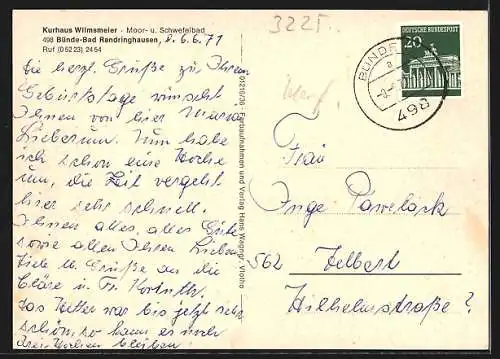 Kurhaus Wilmsmeier - Moor- u. Schwefelbad
498 Bünde-Bad Randringhausen, d. 6.6.71
Ruf (05223) 2464
Die herzl. Grüße zu Ihrem
Geburtstage wünscht
Ihnen von hier Maria
Liebermn. Nun habe
ich schon eine Woche
um, die Zeit vergeht
hier sehr schnell.
Ihnen alles, alles Gute
sowie allen Ihren Lieben
Viele u. Grüße an die
Cläre u. Fr.
Das Wetter war bis jetzt sehr
schön, so kann es noch
drei Wochen bleiben!
Farbaufnahmen und Verlag Hans Wagner Vlotho
322F
DEUTSCHE BUNDESPOST
20
BÜNDE
a
498
Frau
Inge Pawelack
562 Velbert
Wilhelmstraße ?